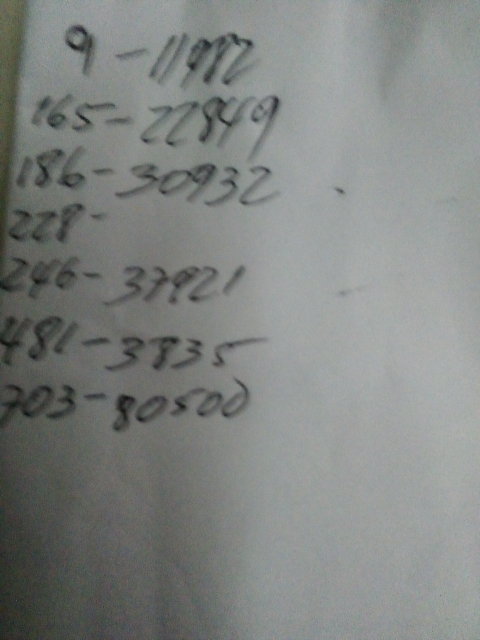 9 - 11982
165 - 22849
186 - 30932
228 -
246 - 37921
481 - 3835
703 - 80500